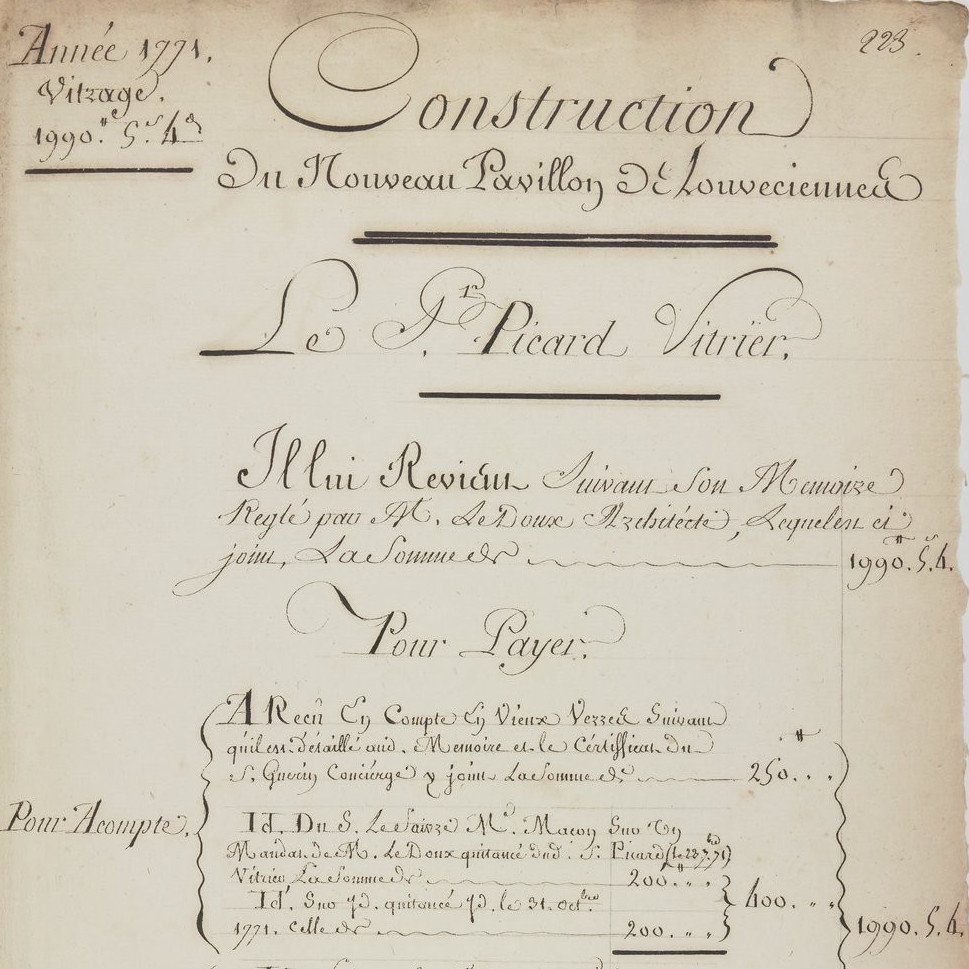 Année 1771.
Vitrage.
1990.# 5.s 4.d
223.
Construction
Du Nouveau Pavillon De Louveciennes
Le S.r Picard Vitrier.
Il lui Revient Suivant Son Memoire
Reglé par M. LeDoux Architecte, Lequel est ci
joint, La Somme de 1990.# 5.s 4.
Pour Payer.
A Recû En Compte En Vieux Verres Suivant
qu'il est détaillé aud. Memoire et le Certifficat du
S. Guerin Concierge y joint La Somme de 250.# . .
Pour Acompte.
Id. Du S. Lefaivre M.d Maçon Sur Un
Mandat de M. LeDoux quitancé dud. S. Picard (le 28.
Vitrier La Somme de 200.# " "
Id. Sur Id. quitancé Id. le 31. Oct.bre
1771. Celle de 200. " " 400. " "
1990. 5. 4.